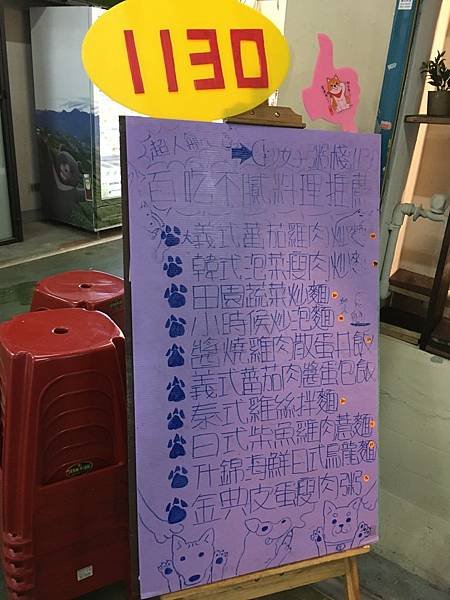 1130
超人氣
百吃不膩料理推薦
義式蕃茄雞肉炒麵
韓式泡菜瘦肉炒麵
田園蔬菜炒麵
小時候炒泡麵
醬燒雞肉散蛋丼飯
義式蕃茄肉醬蛋包飯
泰式雞絲拌麵
日式柴魚雞肉蕎麵
什錦海鮮日式烏龍麵
金典皮蛋瘦肉粥